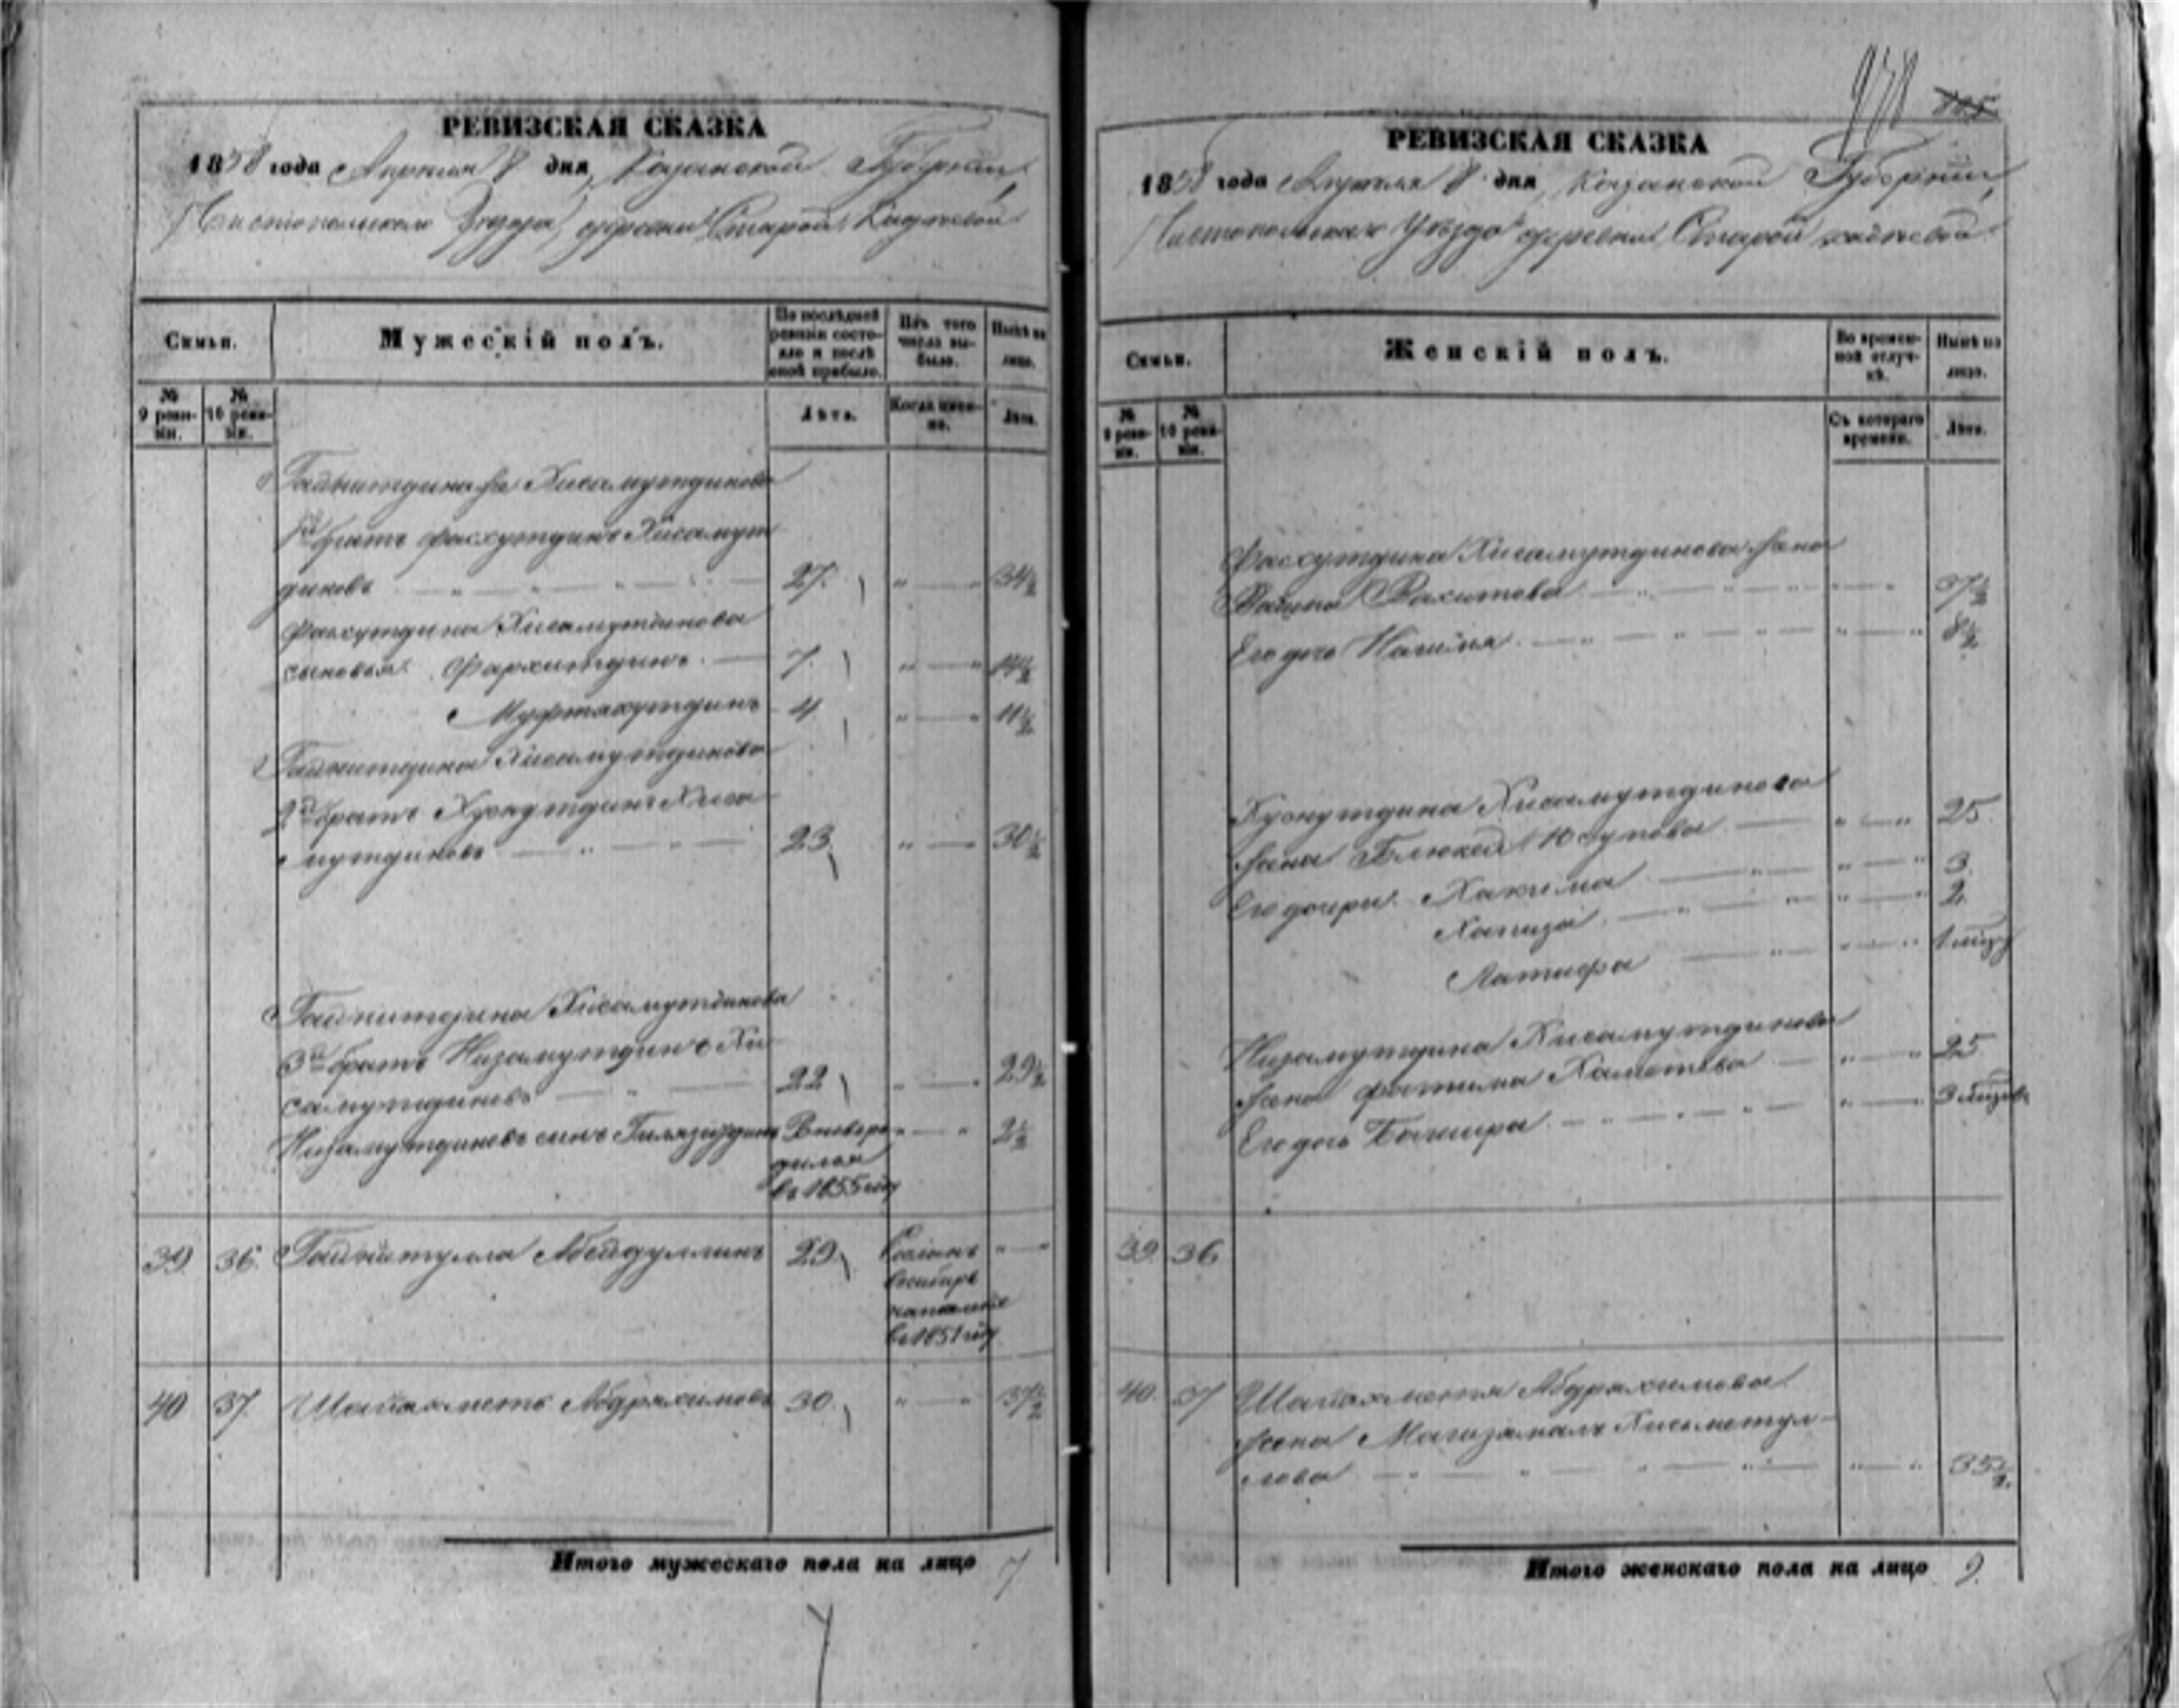 РЕВИЗСКАЯ СКАЗКА
1858 года Апреля 8 дня, Казанской Губернiи,
Чистопольскаго Уезда, деревни Старой
Семьи.
Мужескiй полъ.
По послѣдней ревизiи состояло и послѣ оной прибыло.
Изъ того числа выбыло.
Нынѣ на лицо.
№ 9 ревизiи.
№ 10 ревизiи.
Лѣта.
Когда именно.
Лѣта.
Гайнитдина Хисамутдинова
1й братъ Фасхутдинъ Хисамут
диновъ 27. 34½
Фасхутдина Хисамутдинова
сыновья Фархитдинъ 7. 14½
Муфтахутдинъ 4 11½
Гайнитдина Хисамутдинова
2й братъ Хуснутдинъ Хиса
мутдиновъ 23. 30½
Гайнитдина Хисамутдинова
3й братъ Низамутдинъ Хи
самутдиновъ 22 29½
Низамутдиновъ сынъ 2½
в 1855 году
39. 36. Гайнитулла Абейдуллинъ 29. Сосланъ
в сибирь
на поселенiе
в 1851 году
40 37. Шаиахметъ Абдряхимовъ 30. 37½
Итого мужескаго пола на лицо 7
938 885
РЕВИЗСКАЯ СКАЗКА
1858 года Апреля 8 дня, Казанской Губернiи,
Чистопольскаго Уезда деревни Старой
Семьи.
Женскiй полъ.
Во временной отлучкѣ.
Нынѣ на лицо.
№ 9 ревизiи.
№ 10 ревизiи.
Съ котораго времени.
Лѣта.
Фасхутдина Хисамутдинова жена
Вахитова 37½
Его дочь 8½
Хуснутдина Хисамутдинова
жена Юсупова 25.
Его дочери Хакима 3.
Хатиза 2.
Латифа 1 месяц
Низамутдина Хисамутдинова
жена Фатима Хаметева 25
Его дочь Башира 3 месяцев
39. 36
40. 37 Шаиахметя Абдряхимова
жена Магизямалъ Хисьметул-
лова 35½.
Итого женскаго пола на лицо 9.